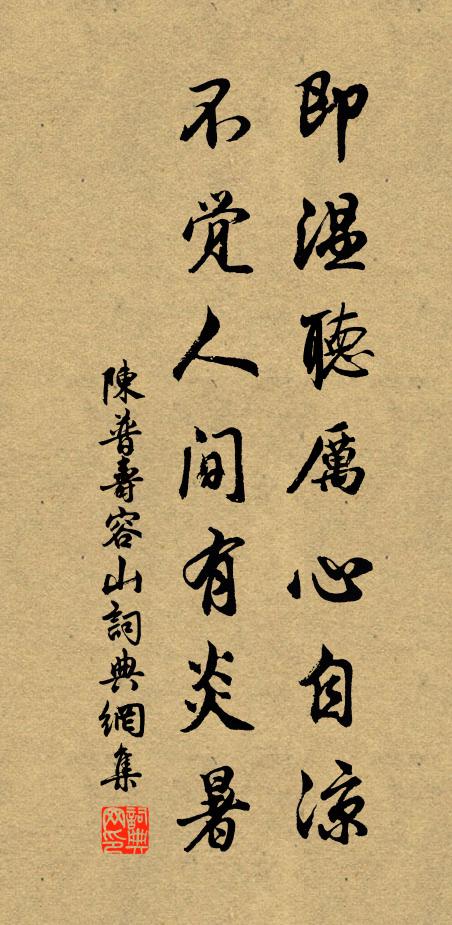 即温聽厲心自凉
不覚人间有炎暑
陳普壽容山詞典網集
詞典網印